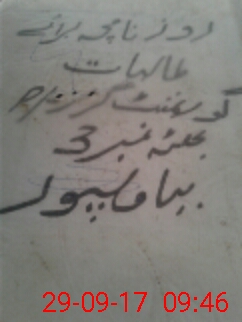 روزنامچہ برائے
طالبات
گورنمنٹ گرلز P/S
چک نمبر 3
بہاولپور
29-09-17 09:46